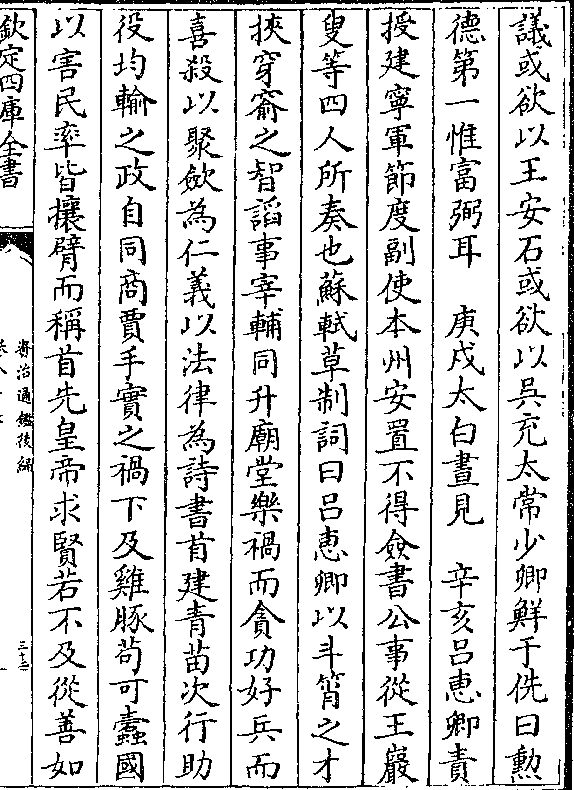 議或欲以王安石或欲以吳充太常少卿鮮于侁曰勲
德第一惟富弼耳　庚戌太白晝見　辛亥呂惠卿責
授建寧軍節度副使本州安置不得僉書公事從王巖
叟等四人所奏也蘇軾草制詞曰呂惠卿以斗筲之才
挾穿窬之智諂事宰輔同升廟堂樂禍而貪功好兵而
喜殺以聚斂為仁義以法律為詩書首建青苗次行助
役均輸之政自同商賈手實之禍下及雞豚茍可蠧國
以害民率皆攘臂而稱首先皇帝求賢若不及從善如
欽定四庫全書
資治通鑑後編